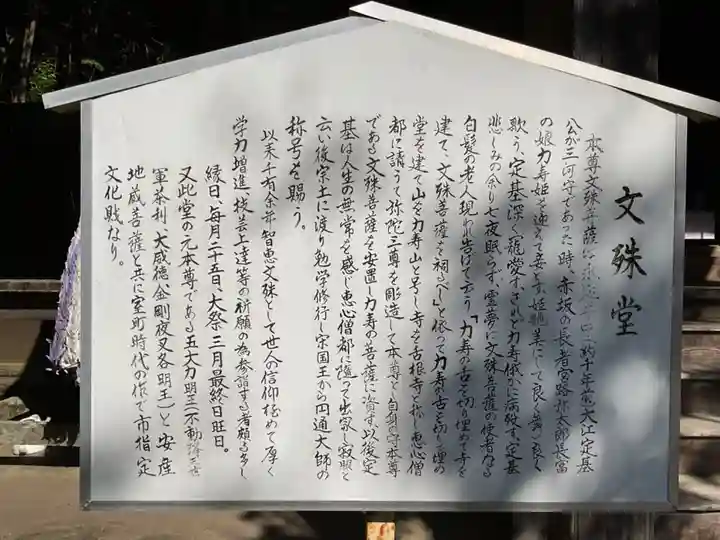 文殊堂
本尊文殊菩薩は 約千年前大江定基
公が三河守であった時、赤坂の長者宮路弥太郎長富
の娘力寿姫を迎えて妾と 姫艶美にして良く舞い良く
歌う、定基深く寵愛す、されど力寿俄かに病歿す、定基
悲しみの余り七夜眠らず、霊夢に文殊菩薩の使者なる
白髪の老人現われ告げて云う「力寿の舌を切り埋め寺を
建て、文殊菩薩を祠るべし」と依って力寿の舌を切り埋め
堂を建て山を力寿山と号し寺を舌根寺と称し恵心僧
都に請うて弥陀三尊を彫造して本尊とし自身の守本尊
である文殊菩薩を安置し力寿の菩薩に資す、以後定
基は人生の無常を感じ恵心僧都に随って出家し寂照と
云い後宋土に渡り勉学修行し宋国王から円通大師の
称号を賜う。
以来千有余年 智恵文殊として世人の信仰極めて厚く
学力増進、技芸上達等の祈願の為参詣する者頗る多し
縁日、毎月二十五日、大祭 三月最終日旺日。
又此堂の元本尊である五大力明王(不動
軍荼利、大威徳金剛夜叉各明王)と安産
地蔵菩薩と共に室町時代の作で市指定
文化財なり。